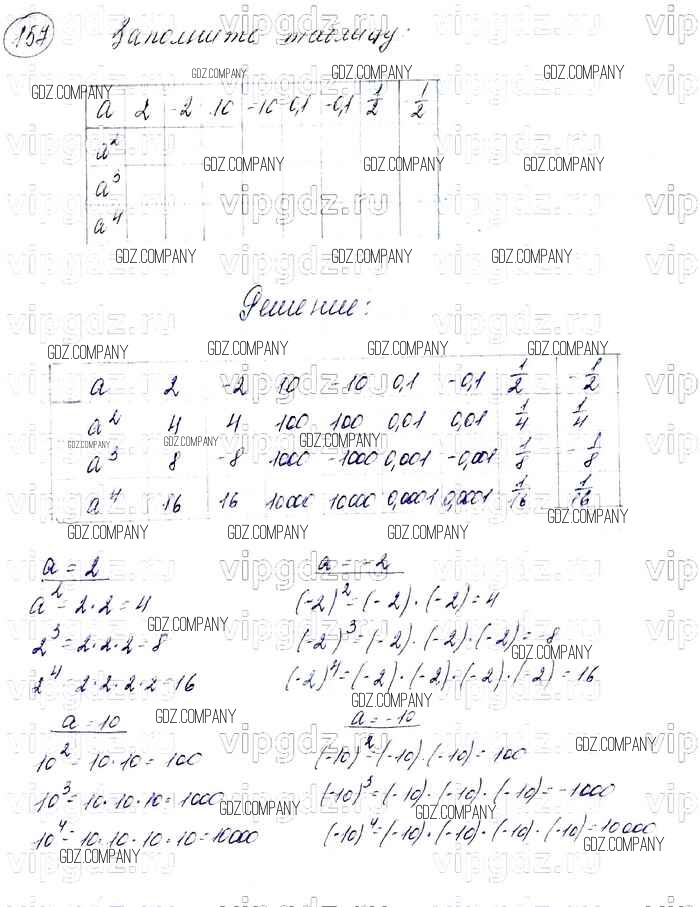 157 Запомнить таблицу.
a 2 -2 10 -10 0,1 -0,1 1/2 -1/2
a²
a³
a⁴
Решение:
a 2 -2 10 -10 0,1 -0,1 1/2 -1/2
a² 4 4 100 100 0,01 0,01 1/4 1/4
a³ 8 -8 1000 -1000 0,001 -0,001 1/8 -1/8
a⁴ 16 16 10000 10000 0,0001 0,0001 1/16 1/16
a = 2
a² = 2·2 = 4
2³ = 2·2·2 = 8
2⁴ = 2·2·2·2 = 16
a = -2
(-2)² = (-2)·(-2) = 4
(-2)³ = (-2)·(-2)·(-2) = -8
(-2)⁴ = (-2)·(-2)·(-2)·(-2) = 16
a = 10
10² = 10·10 = 100
10³ = 10·10·10 = 1000
10⁴ = 10·10·10·10 = 10000
a = -10
(-10)² = (-10)·(-10) = 100
(-10)³ = (-10)·(-10)·(-10) = -1000
(-10)⁴ = (-10)·(-10)·(-10)·(-10) = 10000
GDZ.COMPANY
vipgdz.ru